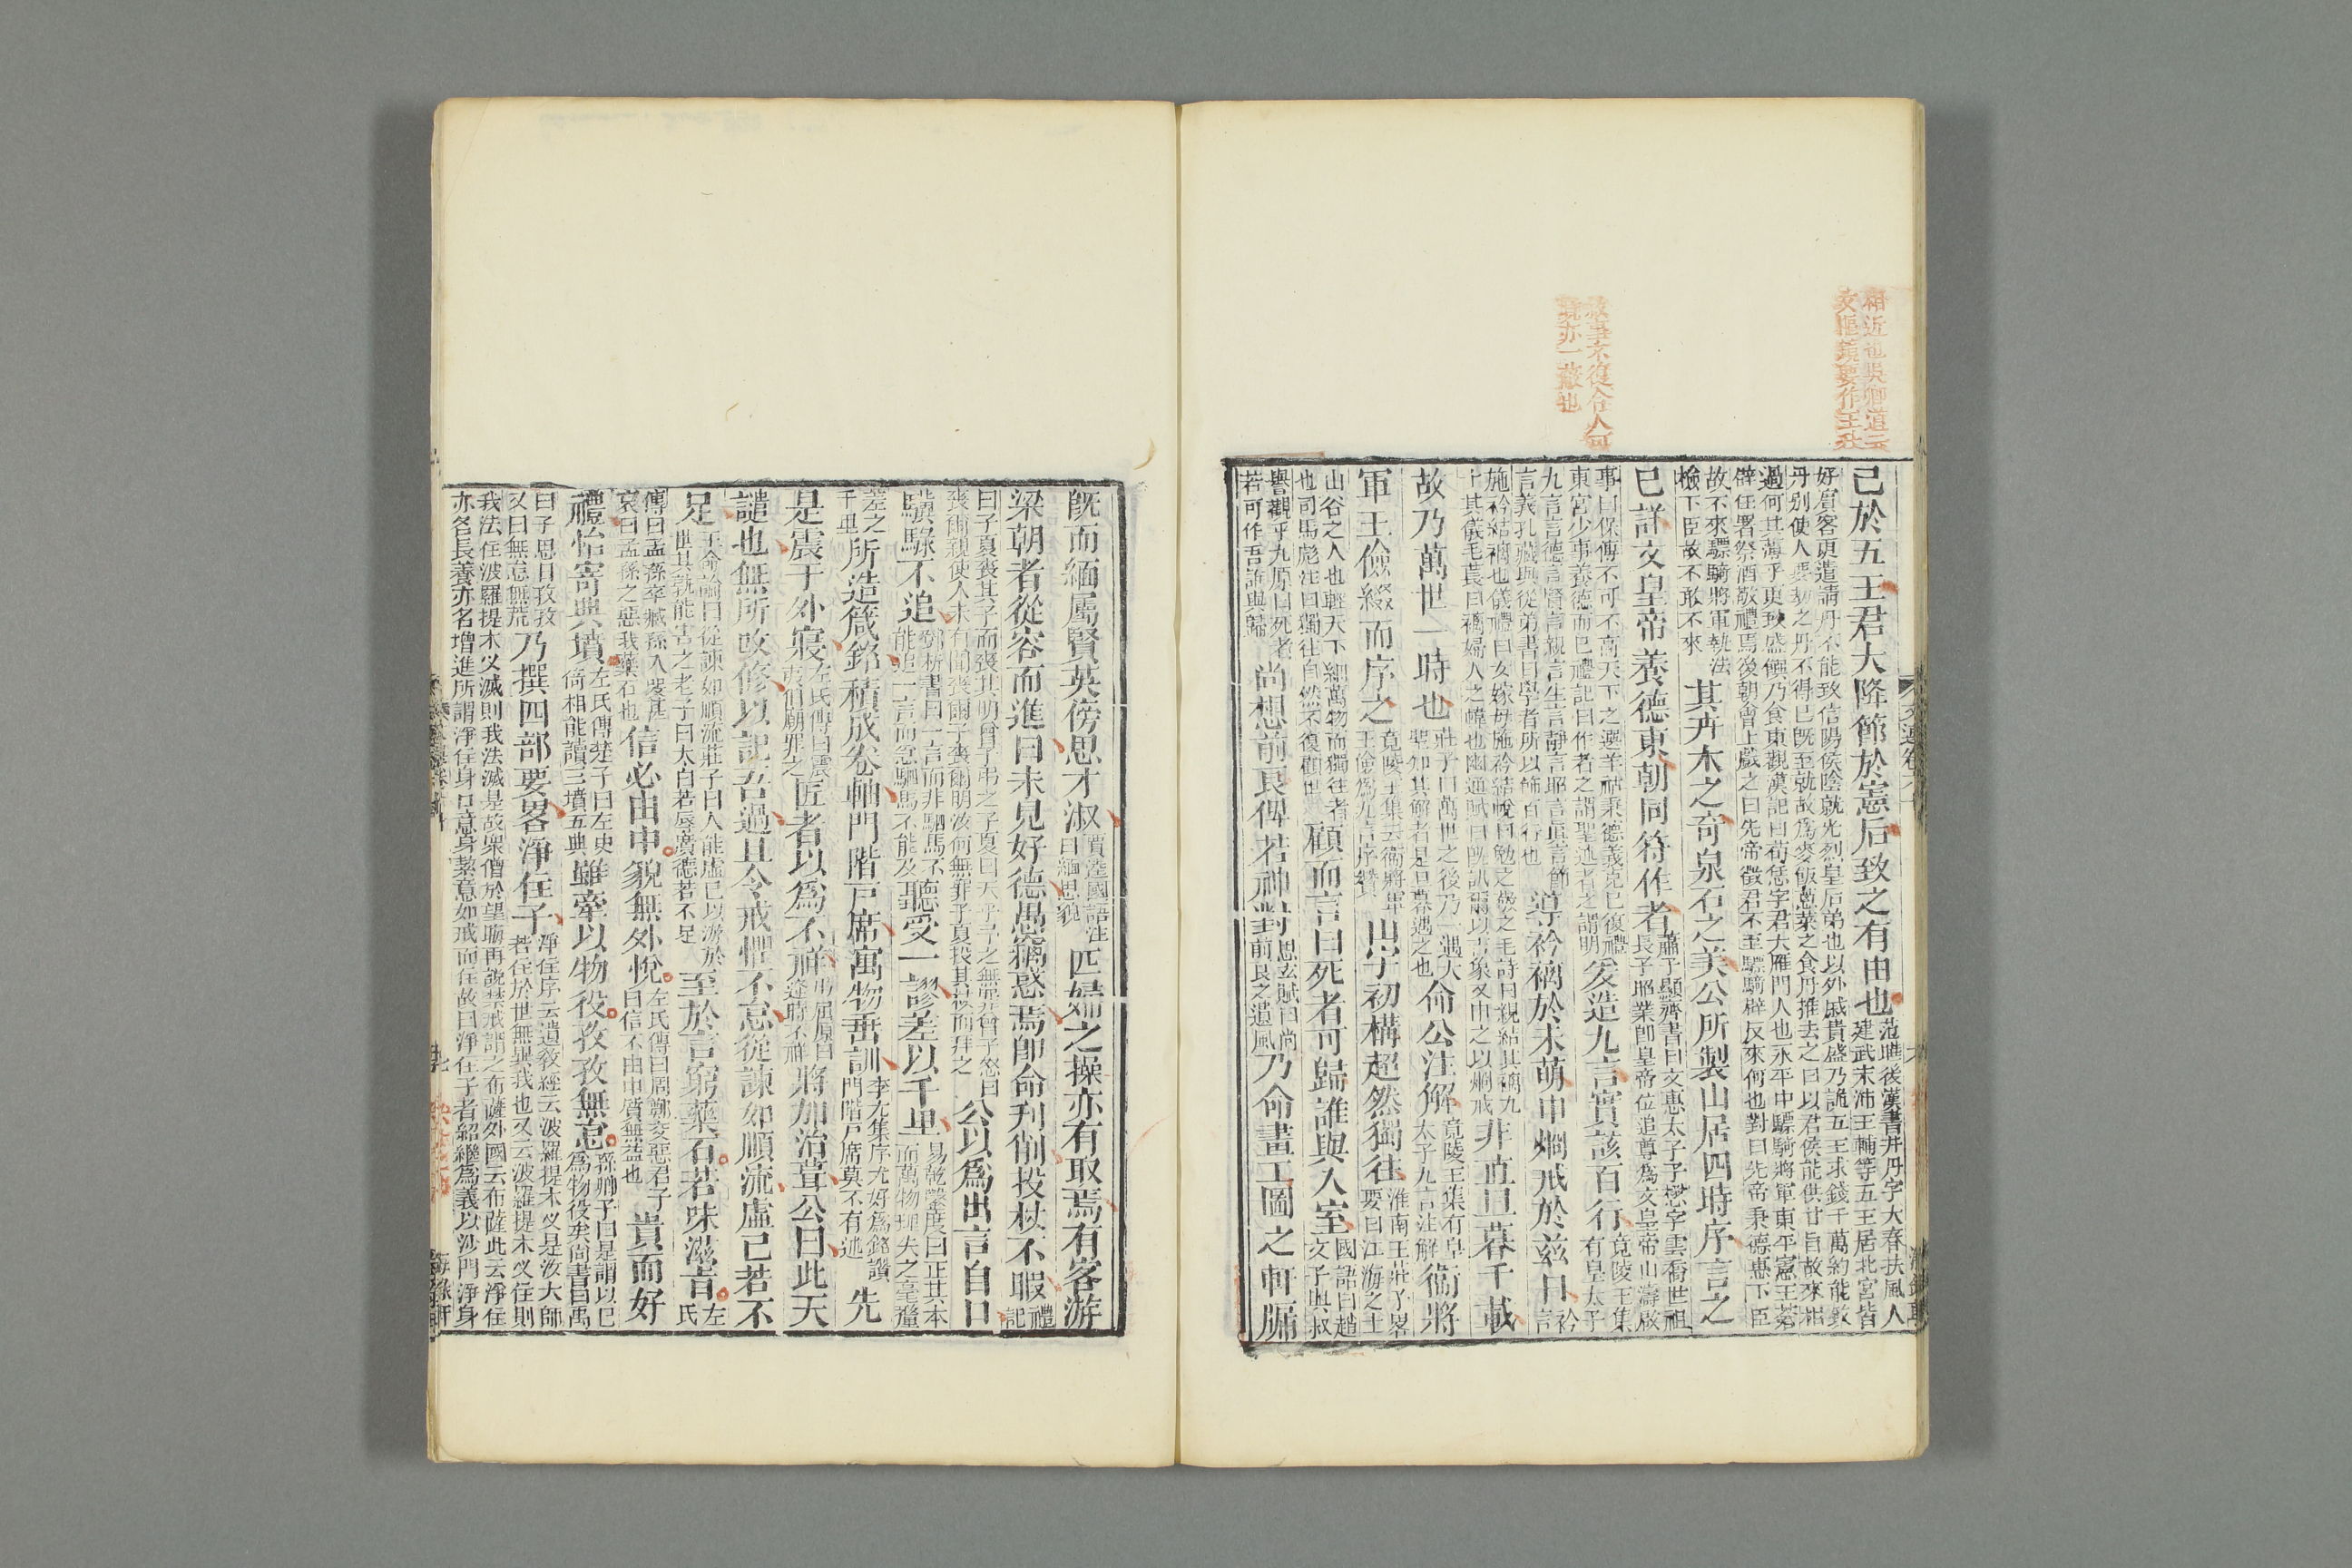 己於五王君大降節於憲后致之有由也范曄後漢書井丹字大春扶風人
建武末沛王輔等五王居北宮皆
好賓客更遣請丹不能致信陽侯陰就光烈皇后弟也以外戚貴盛乃詭五王求錢千萬約能致
丹別使人要劫之丹不得已既至就故為麥飯蔥葉之食丹推去之曰以君侯能供甘旨故來相
過何其薄乎更致盛饌乃食東觀漢記曰荀恁字君大雁門人也永平中驃騎將軍東平憲王蒼
辟任署祭酒敬禮焉後朝會上戲之曰先帝徵君不至驃騎辟反來何也對曰先帝秉德惠下臣
故不來驃騎將軍執法
檢下臣故不敢不來
其卉木之奇泉石之美公所製山居四時序言之
已詳文皇帝養德東朝同符作者蕭子顯齊書曰文惠太子子懋字雲喬世祖
長子鬱業即皇帝位追尊為文皇帝山濤啟
事曰保傅不可不高天下之選羊祜秉德義克己復禮
東宮少事養德而已禮記曰作者之謂聖述者之謂明
爰造九言實該百行有皇太子
竟陵王集
九言言德言賢言親言生言靜言昭言真言節
言義孔臧與從弟書曰學者所以飾百行也
導衿褵於未萌申烱戒於兹日衿
言
施衿結褵也儀禮曰女嫁母施衿結帨曰勉之敬之毛詩曰親結其褵九
十其儀毛萇曰褵婦人之幃也幽通賦曰既訊爾以吉象又申之以烱戒
非直旦暮千載
故乃萬世一時也莊子曰萬世之後乃一遇大
聖知其解者是旦暮遇之也
命公注解竟陵王集有皇
太子九言注解
衞將
軍王儉綴而序之竟陵王集云衞將軍
王儉為九言序贊
山宇初構超然獨往淮南王莊子畧
要曰江海之士
山谷之人也輕天下細萬物而獨往者
也司馬彪注曰獨往自然不復顧世
顧而言曰死者可歸誰與入室國語曰趙
文子與叔
譽觀乎九原曰死者
若可作吾誰與歸
尚想前良俾若神對思玄賦曰尚
前良之遺風
乃命畫工圖之軒牖
既而緬屬賢英傍思才淑賈逵國語注
曰緬思貌
匹婦之操亦有取焉有客游
梁朝者從容而進曰未見好德愚竊惑焉即命刋削投杖不暇禮
記
曰子夏喪其子而喪其明曾子弔之子夏曰天乎予之無罪曾子怒曰
喪爾親使人未有聞喪爾子喪爾明汝何無罪子夏投其杖而拜之
公以為出言自口
驥騄不追鄧析書曰一言而非駟馬不
能追一言而急駟馬不能及
聽受一謬差以千里易乾鑿度曰正其本
而萬物理失之毫釐
差之
千里
所造箴銘積成卷軸門階戸席寓物垂訓李尤集序尤好為銘讚
門階戸席莫不有述
先
是震于外寢左氏傳曰震
夷伯廟罪之
匠者以為不祥出屈原曰
逢時不祥
將加治葺公曰此天
譴也無所改修以記吾過且令戒懼不怠從諫如順流虛己若不
足王命論曰從諫如順流莊子曰人能虛己以游於
世其孰能害之老子曰太白若辱廣德若不足
至於言窮藥石若味滋旨左
氏
傳曰孟孫卒臧孫入哭甚
哀曰孟孫之惡我藥石也
信必由中貌無外悅左氏傳曰周鄭交惡君子
曰信不由中質無益也
貴而好
禮怡寄典墳左氏傳楚子曰左史
倚相能讀三墳五典
雖牽以物役孜孜無怠孫卿子曰是謂以己
為物役矣尚書曰禹
曰予思日孜孜
又曰無怠無荒
乃撰四部要畧淨住子淨住序云遺敎經云波羅提木叉是汝大師
若住於世無異我也又云波羅提木叉住則
我法住波羅提木叉滅則我法滅是故衆僧於望晦再說禁戒謂之布薩外國云布薩此云淨住
亦名長養亦名增進所謂淨住身口意身潔意如戒而住故曰淨住子者紹繼為義以沙門淨身